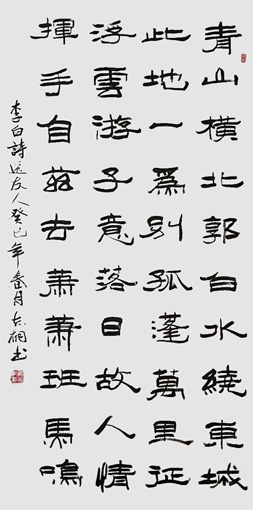 青山橫北郭白水繞東城
此地一為別孤蓬萬里征
浮雲游子意落日故人情
揮手自茲去蕭蕭班馬鳴
李白詩送友人癸巳年